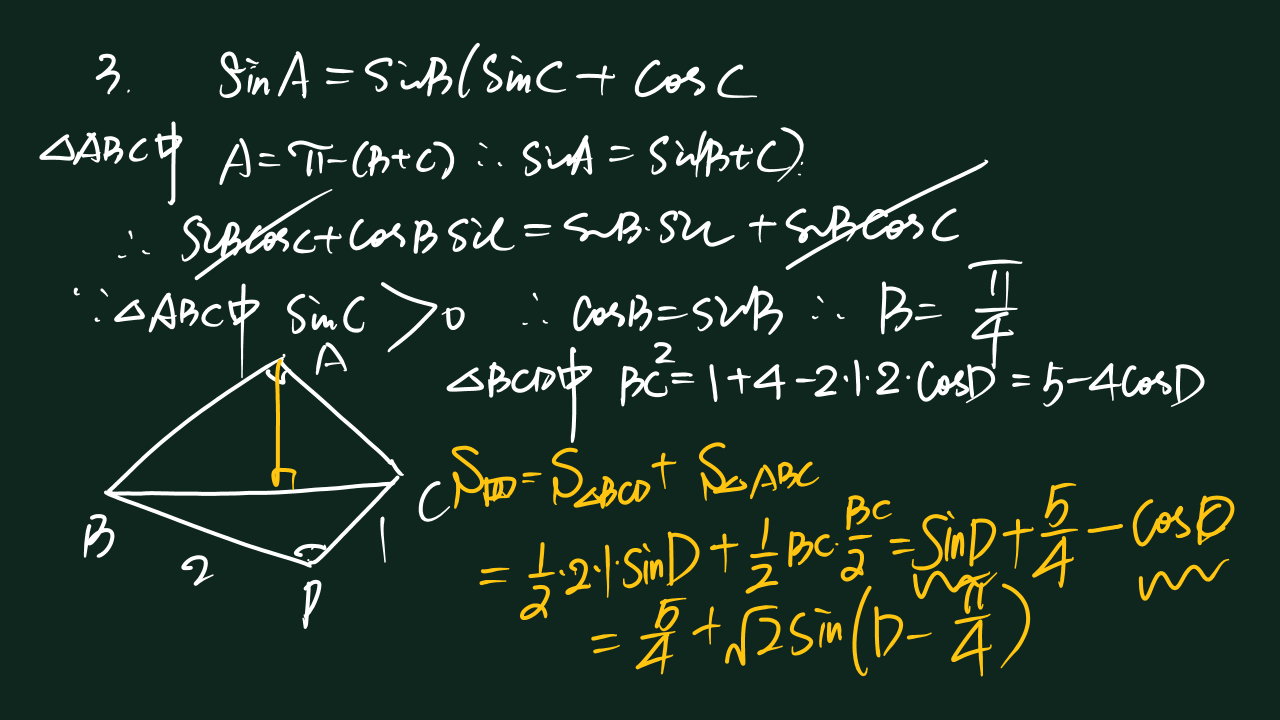 3. SinA = SinB(SinC + cosC
△ABC中 A = π-(B+C) ∴ SinA = Sin(B+C)
∴ SinBcosC + cosB SinC = SinB·SinC + SinBcosC
∵ △ABC中 SinC > 0 ∴ cosB = SinB ∴ B = π/4
△BCD中 BC² = 1+4-2·1·2·cosD = 5-4cosD
A
B
C
D
2
1
S = S△BCD + S△ABC
= 1/2·2·1·SinD + 1/2 BC·BC/2 = SinD + 5/4 - cosD
= 5/4 + √2 Sin(D - π/4)